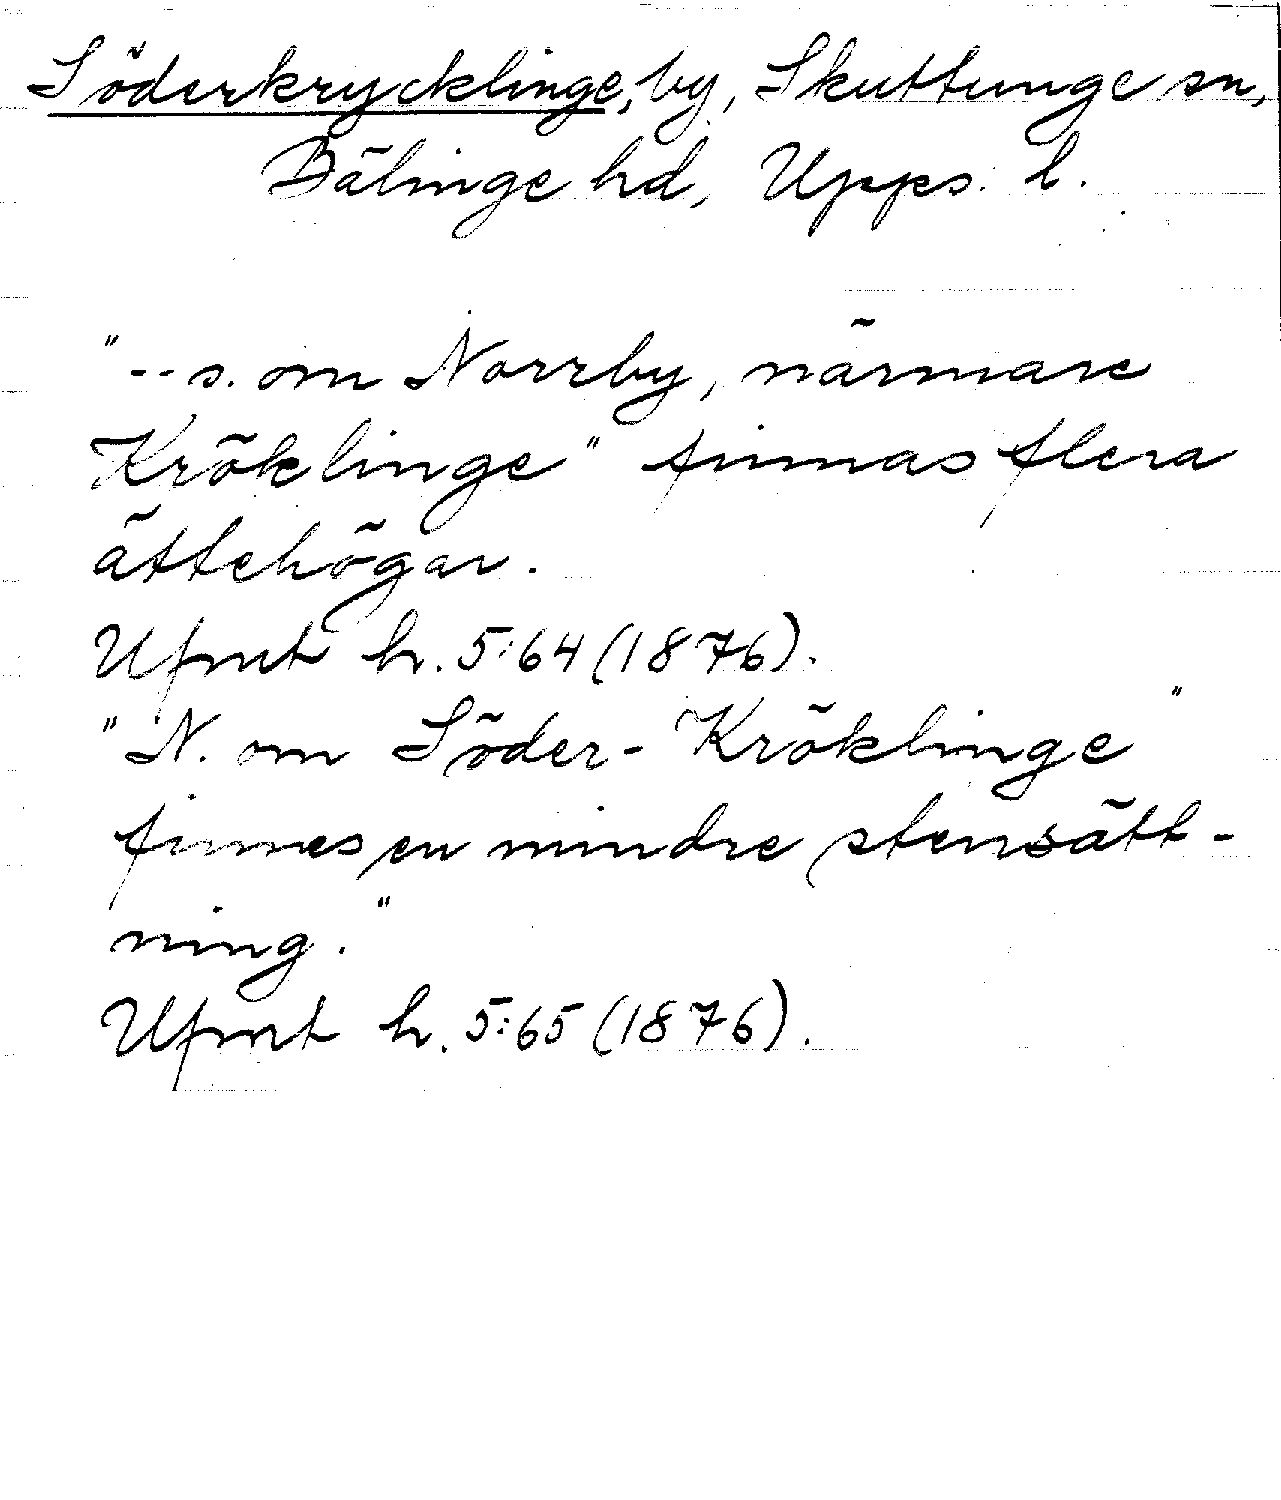 Söderkrycklinge, by, Skuttunge sn,
Bälinge hd, Upps. l.
"-- s. om Norrby, närmare
Kröklinge" finnas flera
ättehögar.
Ufmt h. 5:64 (1876).
"N. om Söder-Kröklinge"
finnes en mindre stensätt-
ning."
Ufmt h. 5:65 (1876).